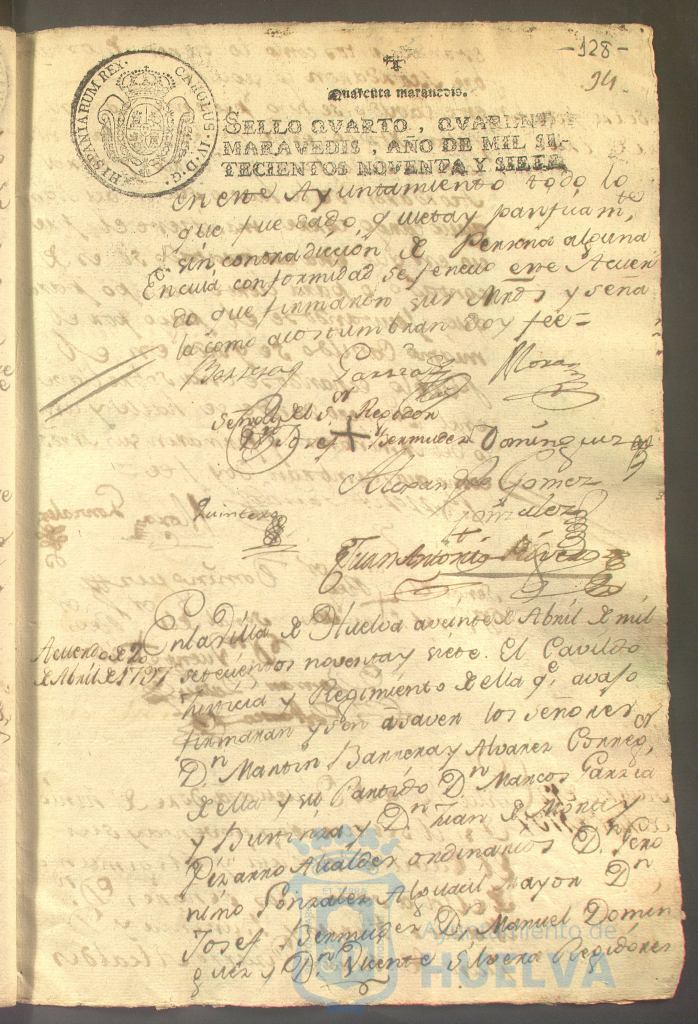 -128-
94.
HISPANIARUM REX. CAROLUS IV. D. G.
Quarenta maravedis.
SELLO QVARTO, QVARENTA
MARAVEDIS, AÑO DE MIL SE-
TECIENTOS NOVENTA Y SIETE
en este Ayuntamiento todo lo
que fue dado, quieta y pacificam.te
sin contradiccion de Persona alguna
En cuia conformidad se fenecio este Acuer
do que firmaron sus Mrds y señal
la como acostumbran doy fee=
Barrera Garzia Mora
Señal del Sor Regidor
Dn Josef + Bermudez Dominguez
Alexandro Gomez
Gonzalez
Quintero
Juan Antonio
Acuerdo de 20
de Abril de 1797
En la Villa de Huelva a veinte de Abril de mil
setecientos noventa y siete. El Cavildo
Justicia y Regimiento de ella qe avajo
firmaran y son a saver los señores
Dn Martin Barrera y Alvarez Correxor
de ella y su Partido Dn Marcos Garzia
y Dn Juan de Mora y
Pizarro Alcaldes ordinarios D. Gero
nimo Gonzalez Alguacil mayor Dn
Josef Bermudez Dn Manuel Domin
guez y Dn Vicente Silvera Regidores
Ayuntamiento de
HUELVA